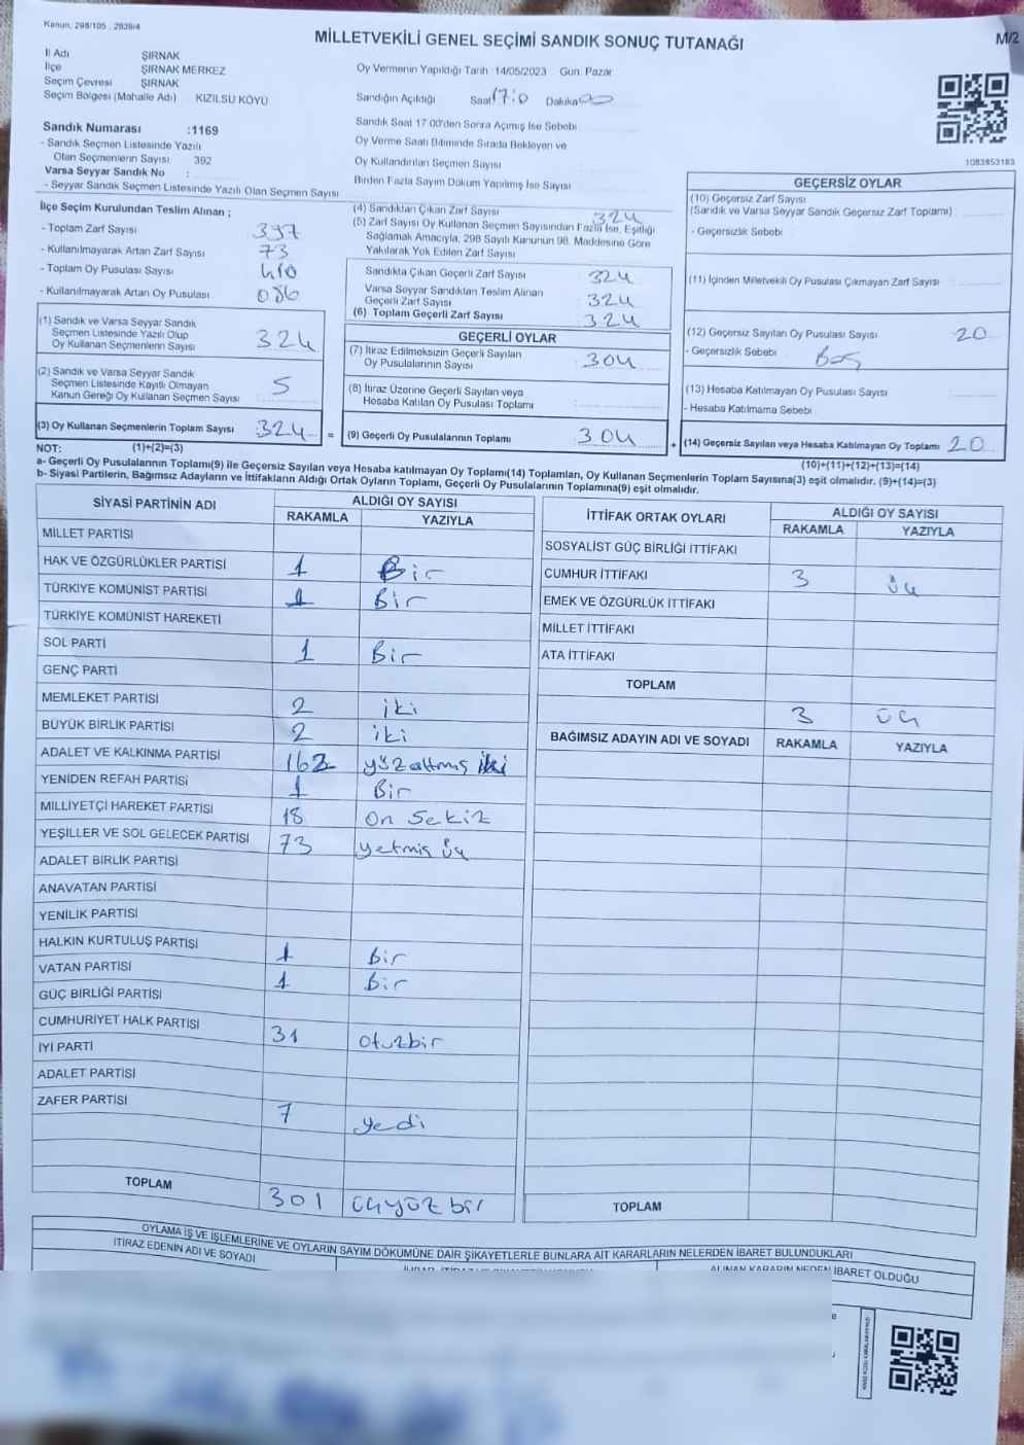 Kanun, 298/105 , 2839/4
MİLLETVEKİLİ GENEL SEÇİMİ SANDIK SONUÇ TUTANAĞI
M/2
İl Adı ŞIRNAK
İlçe ŞIRNAK MERKEZ
Seçim Çevresi ŞIRNAK
Seçim Bölgesi (Mahalle Adı) KIZILSU KÖYÜ
Sandık Numarası :1169
- Sandık Seçmen Listesinde Yazılı
Olan Seçmenlerin Sayısı 392
Varsa Seyyar Sandık No :
- Seyyar Sandık Seçmen Listesinde Yazılı Olan Seçmen Sayısı
Oy Vermenin Yapıldığı Tarih :14/05/2023 Gün: Pazar
Sandığın Açıldığı Saat 17:0 Dakika 00
Sandık Saat 17.00'den Sonra Açılmış İse Sebebi
Oy Verme Saati Bitiminde Sırada Bekleyen ve
Oy Kullandırılan Seçmen Sayısı
Birden Fazla Sayım Döküm Yapılmış İse Sayısı
1083853183
İlçe Seçim Kurulundan Teslim Alınan ;
- Toplam Zarf Sayısı 397
- Kullanılmayarak Artan Zarf Sayısı 73
- Toplam Oy Pusulası Sayısı 410
- Kullanılmayarak Artan Oy Pusulası 086
(1) Sandık ve Varsa Seyyar Sandık
Seçmen Listesinde Yazılı Olup
Oy Kullanan Seçmenlerin Sayısı 324
(2) Sandık ve Varsa Seyyar Sandık
Seçmen Listesinde Kayıtlı Olmayan
Kanun Gereği Oy Kullanan Seçmen Sayısı 5
(3) Oy Kullanan Seçmenlerin Toplam Sayısı 324 =
(4) Sandıktan Çıkan Zarf Sayısı 324
(5) Zarf Sayısı Oy Kullanan Seçmen Sayısından Fazla İse, Eşitliği
Sağlamak Amacıyla, 298 Sayılı Kanunun 98. Maddesine Göre
Yakılarak Yok Edilen Zarf Sayısı
Sandıkta Çıkan Geçerli Zarf Sayısı 324
Varsa Seyyar Sandıktan Teslim Alınan
Geçerli Zarf Sayısı 324
(6) Toplam Geçerli Zarf Sayısı 324
GEÇERLİ OYLAR
(7) İtiraz Edilmeksizin Geçerli Sayılan
Oy Pusulalarının Sayısı 304
(8) İtiraz Üzerine Geçerli Sayılan veya
Hesaba Katılan Oy Pusulası Toplamı
(9) Geçerli Oy Pusulalarının Toplamı 304 +
GEÇERSİZ OYLAR
(10) Geçersiz Zarf Sayısı
(Sandık ve Varsa Seyyar Sandık Geçersiz Zarf Toplamı)
- Geçersizlik Sebebi
(11) İçinden Milletvekili Oy Pusulası Çıkmayan Zarf Sayısı
(12) Geçersiz Sayılan Oy Pusulası Sayısı 20
- Geçersizlik Sebebi Boş
(13) Hesaba Katılmayan Oy Pusulası Sayısı
- Hesaba Katılmama Sebebi
(14) Geçersiz Sayılan veya Hesaba Katılmayan Oy Toplamı 20
NOT: (1)+(2)=(3)
(10)+(11)+(12)+(13)=(14)
a- Geçerli Oy Pusulalarının Toplamı(9) ile Geçersiz Sayılan veya Hesaba katılmayan Oy Toplamı(14) Toplamları, Oy Kullanan Seçmenlerin Toplam Sayısına(3) eşit olmalıdır. (9)+(14)=(3)
b- Siyasi Partilerin, Bağımsız Adayların ve İttifakların Aldığı Ortak Oyların Toplamı, Geçerli Oy Pusulalarının Toplamına(9) eşit olmalıdır.
SİYASİ PARTİNİN ADI ALDIĞI OY SAYISI
RAKAMLA YAZIYLA
MİLLET PARTİSİ
HAK VE ÖZGÜRLÜKLER PARTİSİ 1 Bir
TÜRKİYE KOMÜNİST PARTİSİ 1 Bir
TÜRKİYE KOMÜNİST HAREKETİ
SOL PARTİ 1 Bir
GENÇ PARTİ
MEMLEKET PARTİSİ 2 iki
BÜYÜK BİRLİK PARTİSİ 2 iki
ADALET VE KALKINMA PARTİSİ 162 yüz altmış iki
YENİDEN REFAH PARTİSİ 1 Bir
MİLLİYETÇİ HAREKET PARTİSİ 18 On Sekiz
YEŞİLLER VE SOL GELECEK PARTİSİ 73 yetmiş üç
ADALET BİRLİK PARTİSİ
ANAVATAN PARTİSİ
YENİLİK PARTİSİ
HALKIN KURTULUŞ PARTİSİ 1 Bir
VATAN PARTİSİ 1 Bir
GÜÇ BİRLİĞİ PARTİSİ
CUMHURİYET HALK PARTİSİ 31 otuzbir
İYİ PARTİ
ADALET PARTİSİ
ZAFER PARTİSİ 7 yedi
TOPLAM 301 üçyüz bir
İTTİFAK ORTAK OYLARI ALDIĞI OY SAYISI
RAKAMLA YAZIYLA
SOSYALİST GÜÇ BİRLİĞİ İTTİFAKI
CUMHUR İTTİFAKI 3 üç
EMEK VE ÖZGÜRLÜK İTTİFAKI
MİLLET İTTİFAKI
ATA İTTİFAKI
TOPLAM
3 üç
BAĞIMSIZ ADAYIN ADI VE SOYADI RAKAMLA YAZIYLA
TOPLAM
OYLAMA İŞ VE İŞLEMLERİNE VE OYLARIN SAYIM DÖKÜMÜNE DAİR ŞİKAYETLERLE BUNLARA AİT KARARLARIN NELERDEN İBARET BULUNDUKLARI
İTİRAZ EDENİN ADI VE SOYADI
ALINAN KARARIN NEDEN İBARET OLDUĞU